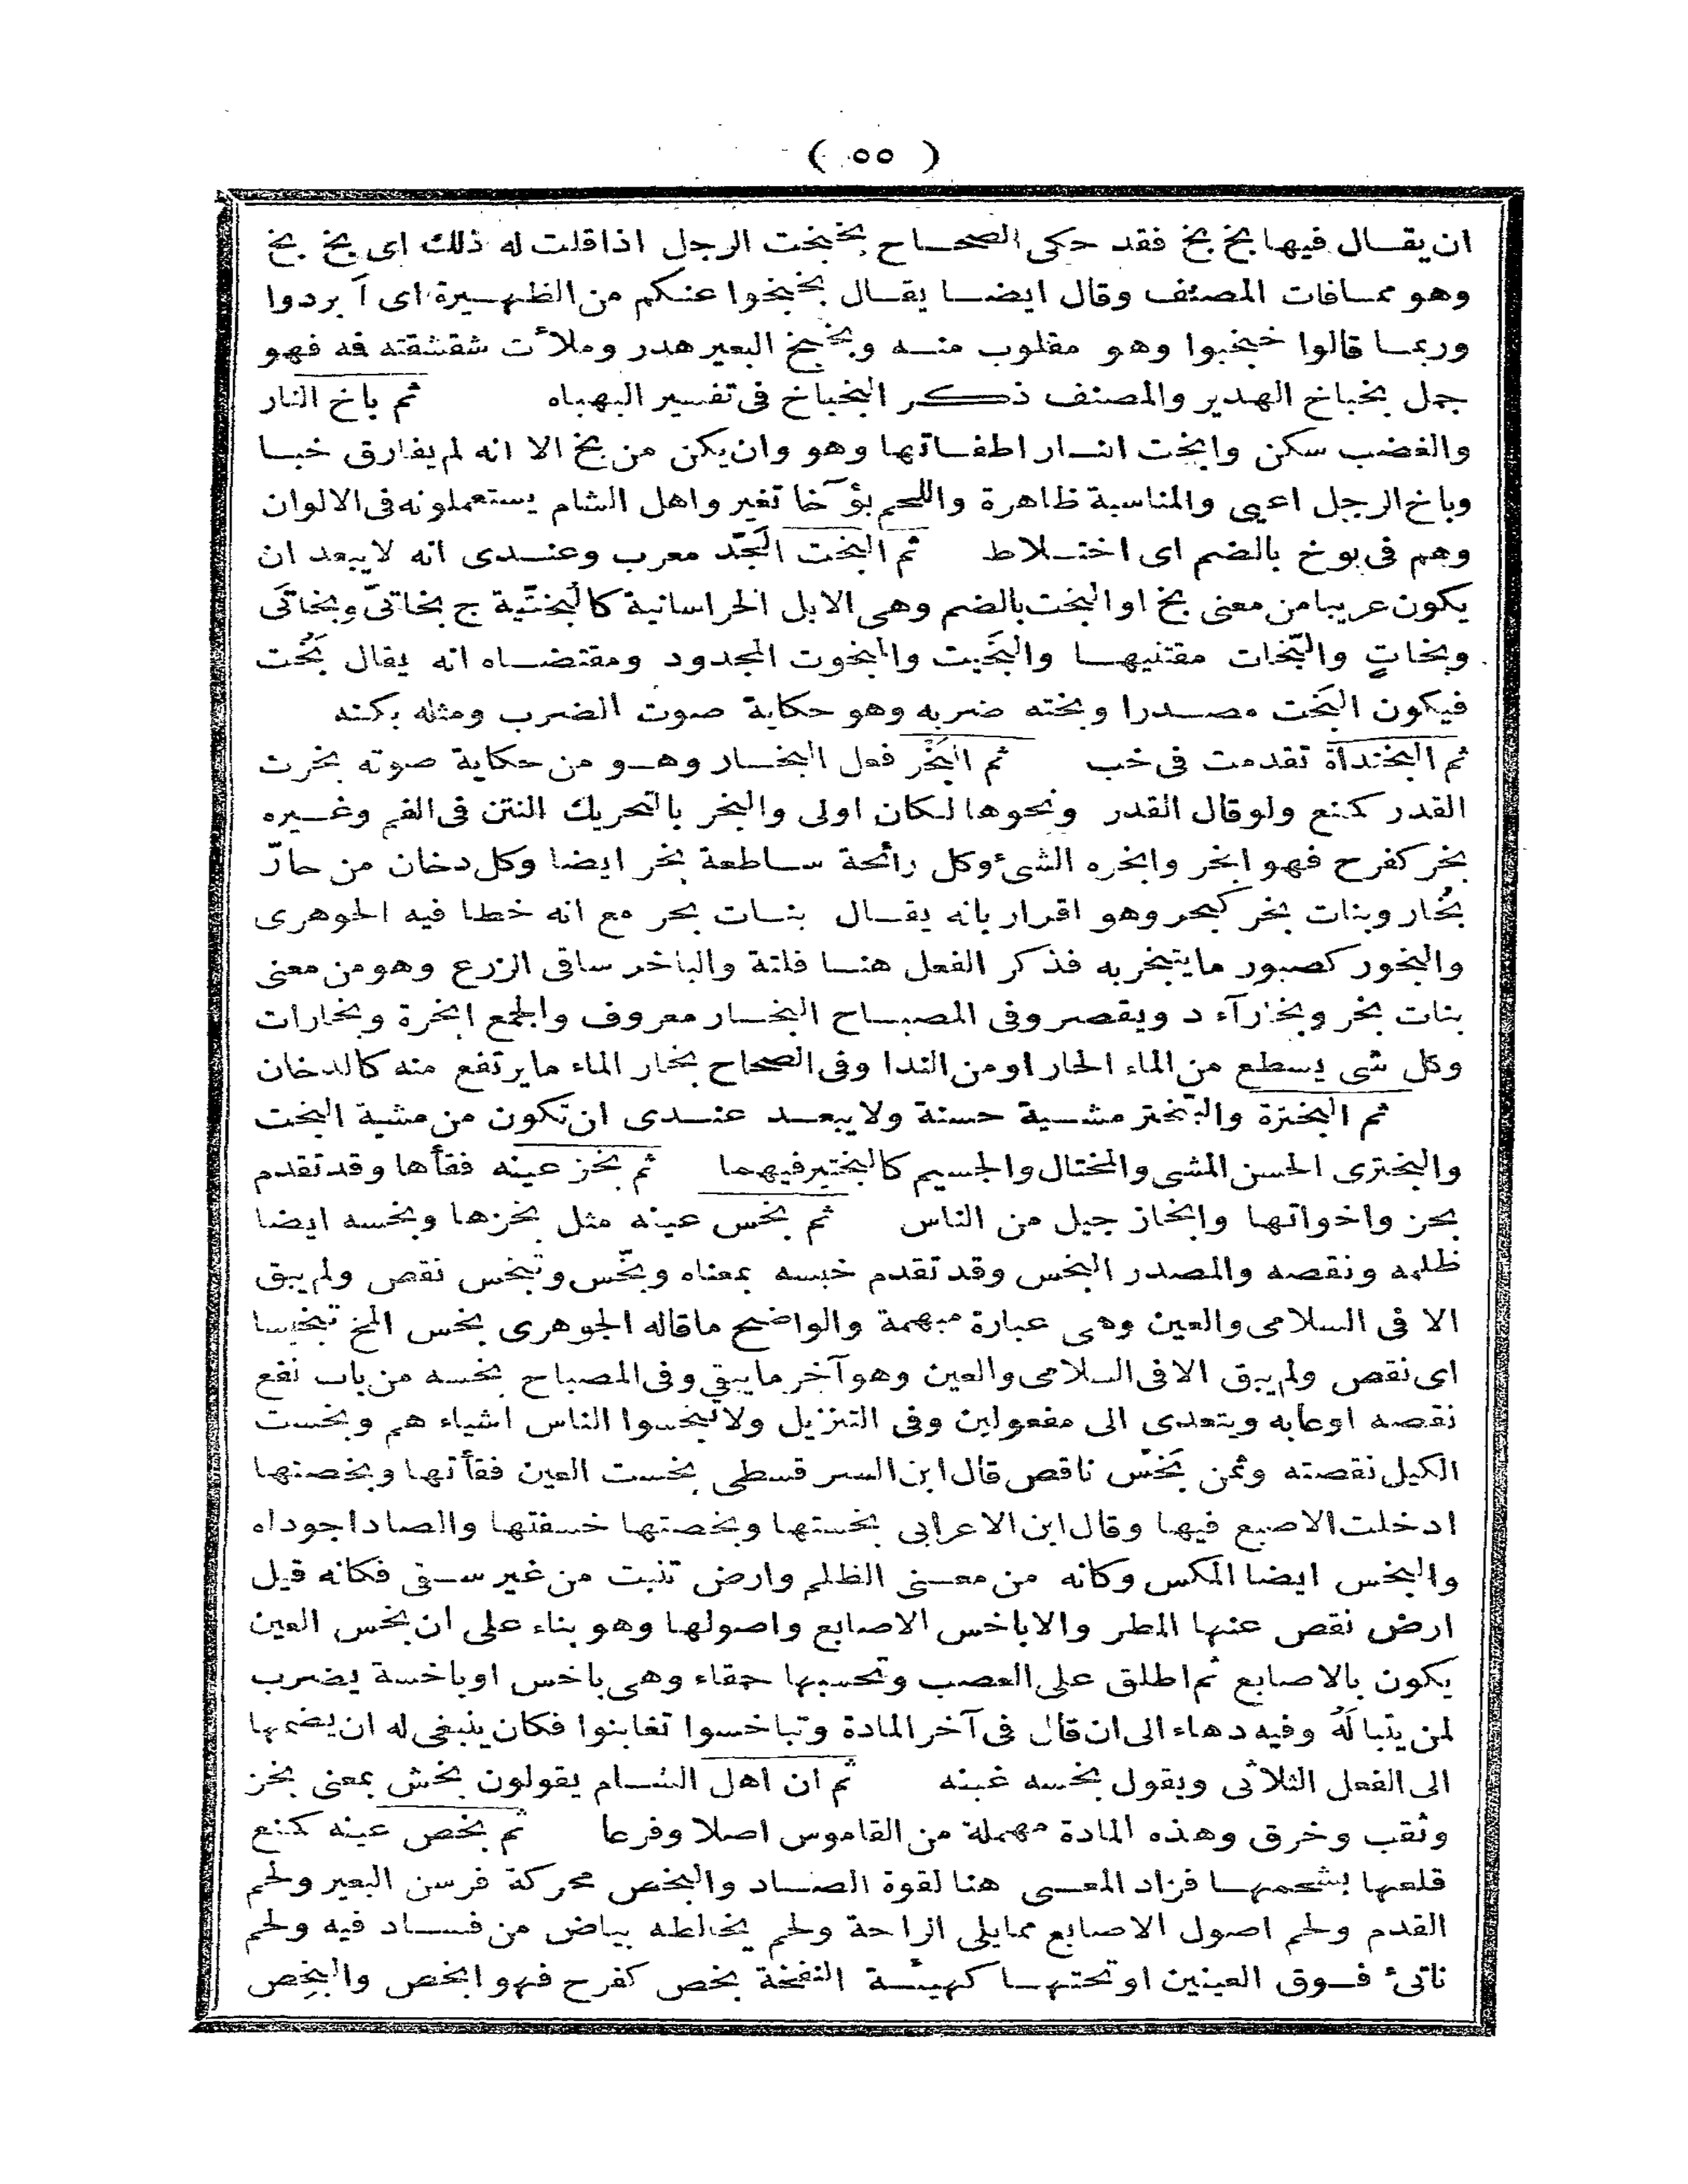 ( ٥٥ )
ان يقال فيها بخ بخ فقد حكى الصحاح بخبخت الرجل اذا قلت له ذلك اى بخ بخ
وهو مما فات المصنف وقال ايضا يقال بخبخوا عنكم من الظهيرة اى آبردوا
وربما قالوا خبخبوا وهو مقلوب منه وبخبخ البعير هدر وملأت شقشقته فه فهو
جمل بخباخ الهدير والمصنف ذكر البخباخ فى تفسير البهباه ثم باخ النار
والغضب سكن وابخت النار اطفاتها وهو وان يكن من بخ الا انه لم يفارق خبا
وباخ الرجل اعيى والمناسبة ظاهرة واللحم بؤخا تغير واهل الشام يستعملونه فى الالوان
وهم فى بوخ بالضم اى اختلاط ثم البخت الجَدّ معرب وعندى انه لا يبعد ان
يكون عربيا من معنى بخ او البخت بالضم وهى الابل الخراسانية كالبُختّية ج بخاتىّ وبخاتَى
وبخاتٍ والبّخات مقتنيها والبَخيت والمبخوت المجدود ومقتضاه انه يقال بَخُت
فيكون البَخت مصدرا وبخته ضربه وهو حكاية صوت الضرب ومثله بكته
ثم البخنداة تقدمت فى خب ثم البَخْر فعل البخار وهو من حكاية صوته بخرت
القدر كمنع ولو قال القدر ونحوها لكان اولى والبخر بالتحريك النتن فى الفم وغيره
بخر كفرح فهو ابخر وابخره الشئ وكل رائحة ساطعة بخر ايضا وكل دخان من حارّ
بُخار وبنات بخر كبحر وهو اقرار بانه يقال بنات بحر مع انه خطا فيه الجوهرى
والبخور كصبور ما يتبخر به فذكر الفعل هنا فلتة والباخر ساقى الزرع وهو من معنى
بنات بخر وبخارآء د ويقصر وفى المصباح البخار معروف والجمع ابخرة وبخارات
وكل شى يسطع من الماء الحار او من الندا وفى الصحاح بخار الماء ما يرتفع منه كالدخان
ثم البخترة والتبختر مشية حسنة ولا يبعد عندى ان تكون من مشية البخت
والبخترى الحسن المشى والمختال والجسيم كالبختير فيهما ثم بخز عينه فقأها وقد تقدم
بحز واخواتها وابخاز جيل من الناس ثم بخس عينه مثل بخزها وبخسه ايضا
ظلمه ونقصه والمصدر البخس وقد تقدم خبسه بمعناه وبخّس وتبخس نقص ولم يبق
الا فى السلامى والعين وهى عبارة مبهمة والواضح ما قاله الجوهرى بخس المخ تبخيسا
اى نقص ولم يبق الا فى السلامى والعين وهو آخر ما يبقى وفى المصباح بخسه من باب نفع
نقصه او عابه ويتعدى الى مفعولين وفى التنزيل ولا تبخسوا الناس اشياء هم وبخست
الكيل نقصته وثمن بَخْس ناقص قال ابن السرقسطى بخست العين فقأتها وبخصتها
ادخلت الاصبع فيها وقال ابن الاعرابى بخستها وبخصتها خسفتها والصاد اجوداه
والبخس ايضا المكس وكانه من معنى الظلم وارض تنبت من غير سقى فكانه قيل
ارض نقص عنها المطر والاباخس الاصابع واصولها وهو بناء على ان بخس العين
يكون بالاصابع ثم اطلق على العصب وتحسبها حمقاء وهى باخس او باخسة يضرب
لمن يتباله وفيه دهاء الى ان قال فى آخر المادة وتباخسوا تغابنوا فكان ينبغى له ان يضمها
الى الفعل الثلاثى ويقول بخسه غبنه ثم ان اهل الشام يقولون بخش بمعنى بخز
وثقب وخرق وهذه المادة مهملة من القاموس اصلا وفرعا ثم بخص عينه كمنع
قلعها بشحمها فزاد المعنى هنا لقوة الصاد والبخص محركة فرسن البعير ولحم
القدم ولحم اصول الاصابع مما يلى الراحة ولحم يخالطه بياض من فساد فيه ولحم
ناتئ فوق العينين او تحتها كهيئة النفخة بخص كفرح فهو ابخص والبخِص